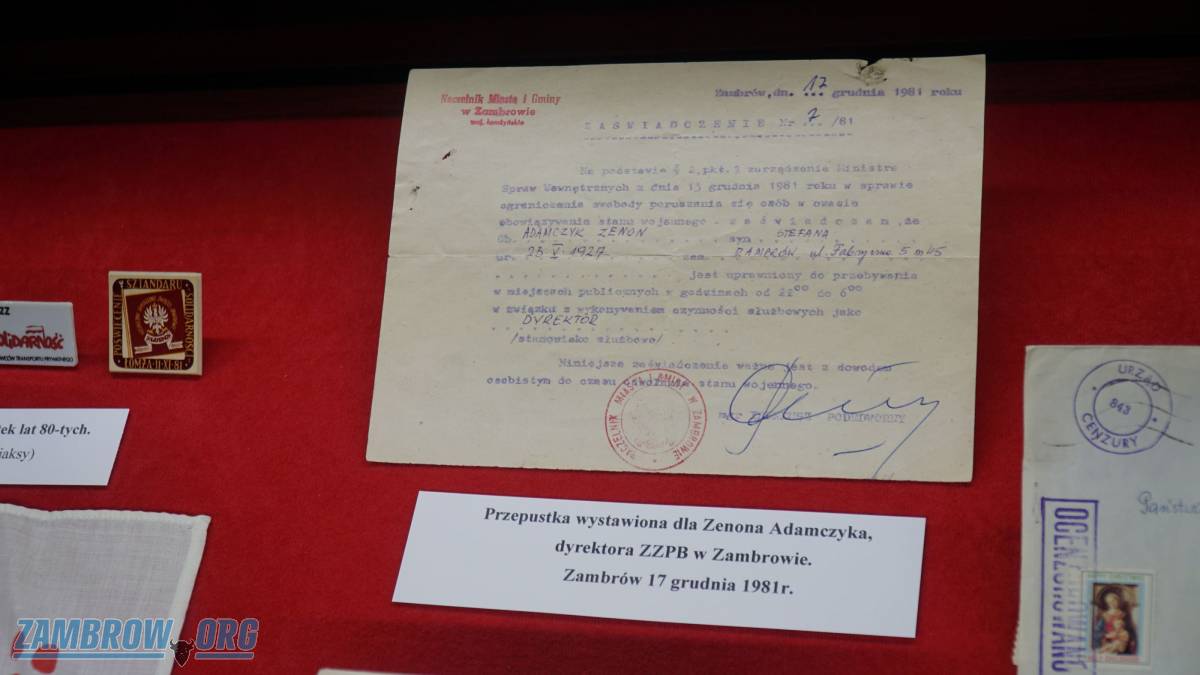 Naczelnik Miasta i Gminy
w Zambrowie
woj. łomżyńskie
Zambrów, dn. 17 grudnia 1981 roku
ZAŚWIADCZENIE Nr 7 /81
Na podstawie § 2, pkt. zarządzenia Ministra
Spraw Wewnętrznych z dnia 13 grudnia 1981 roku w sprawie
ograniczenia swobody poruszania się osób w czasie
obowiązywania stanu wojennego - zaświadczam, że
Ob. ADAMCZYK ZENON syn STEFANA
ur. 23 V 1927 zam. ZAMBRÓW ul. Fabryczna 5 m 45
jest uprawniony do przebywania
w miejscach publicznych w godzinach od 22⁰⁰ do 6⁰⁰
w związku z wykonywaniem czynności służbowych jako
DYREKTOR
/stanowisko służbowe/
Niniejsze zaświadczenie ważne jest z dowodem
osobistym do czasu stanu wojennego.
mgr PODEDWORNY
NACZELNIK MIASTA I GMINY W ZAMBROWIE
Przepustka wystawiona dla Zenona Adamczyka,
dyrektora ZZPB w Zambrowie.
Zambrów 17 grudnia 1981r.
ZZ
SOLIDARNOŚĆ
TRANSPORTU PRYWATNEGO
POŚWIĘCENIE SZTANDARU SOLIDARNOŚCI
ŁOMŻA 11-XI-81
tek lat 80-tych.
jaksy)
URZĄD
843
CENZURY
OCENZUROWANO
ZAMBROW.ORG